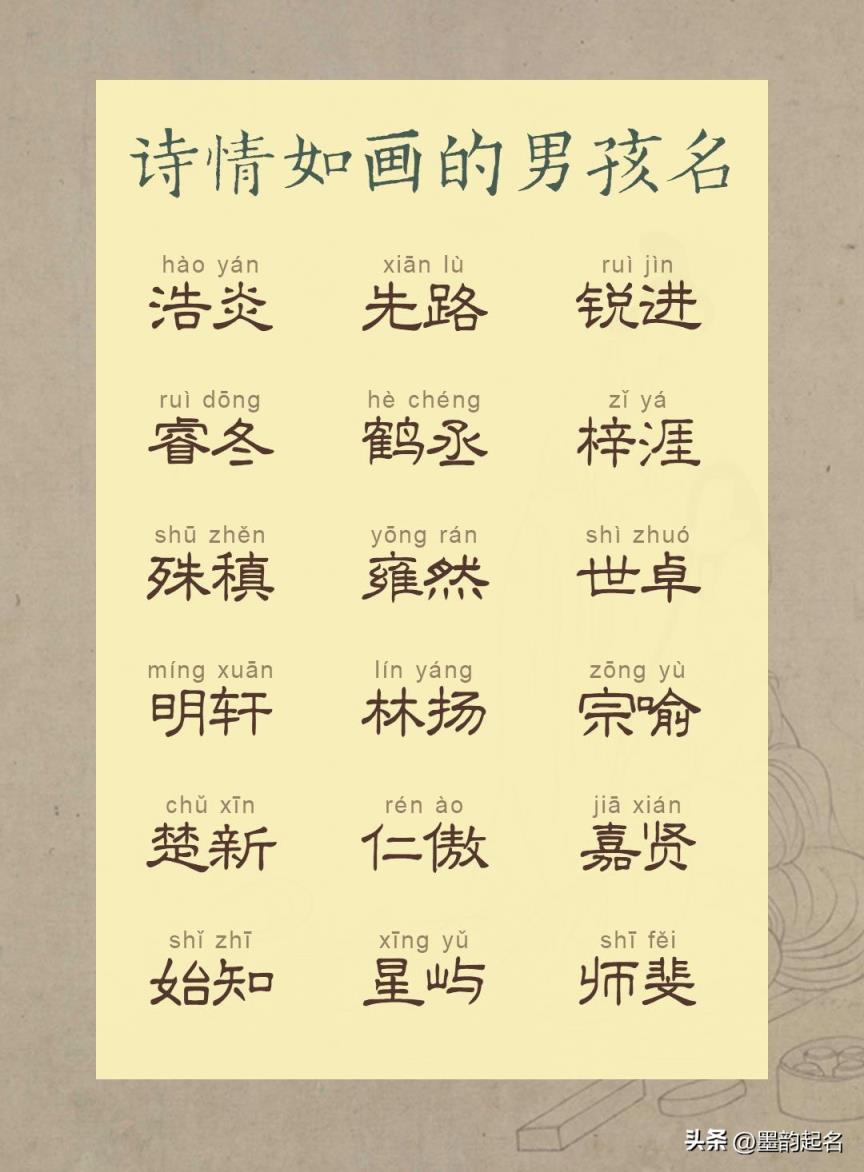 诗情如画的男孩名
hào yán xiān lù ruì jìn
浩炎 先路 锐进
ruì dōng hè chéng zǐ yá
睿冬 鹤丞 梓涯
shū zhěn yōng rán shì zhuó
殊稹 雍然 世卓
míng xuān lín yáng zōng yù
明轩 林扬 宗喻
chǔ xīn rén ào jiā xián
楚新 仁傲 嘉贤
shǐ zhī xīng yǔ shī fěi
始知 星屿 师斐
头条 @墨韵起名